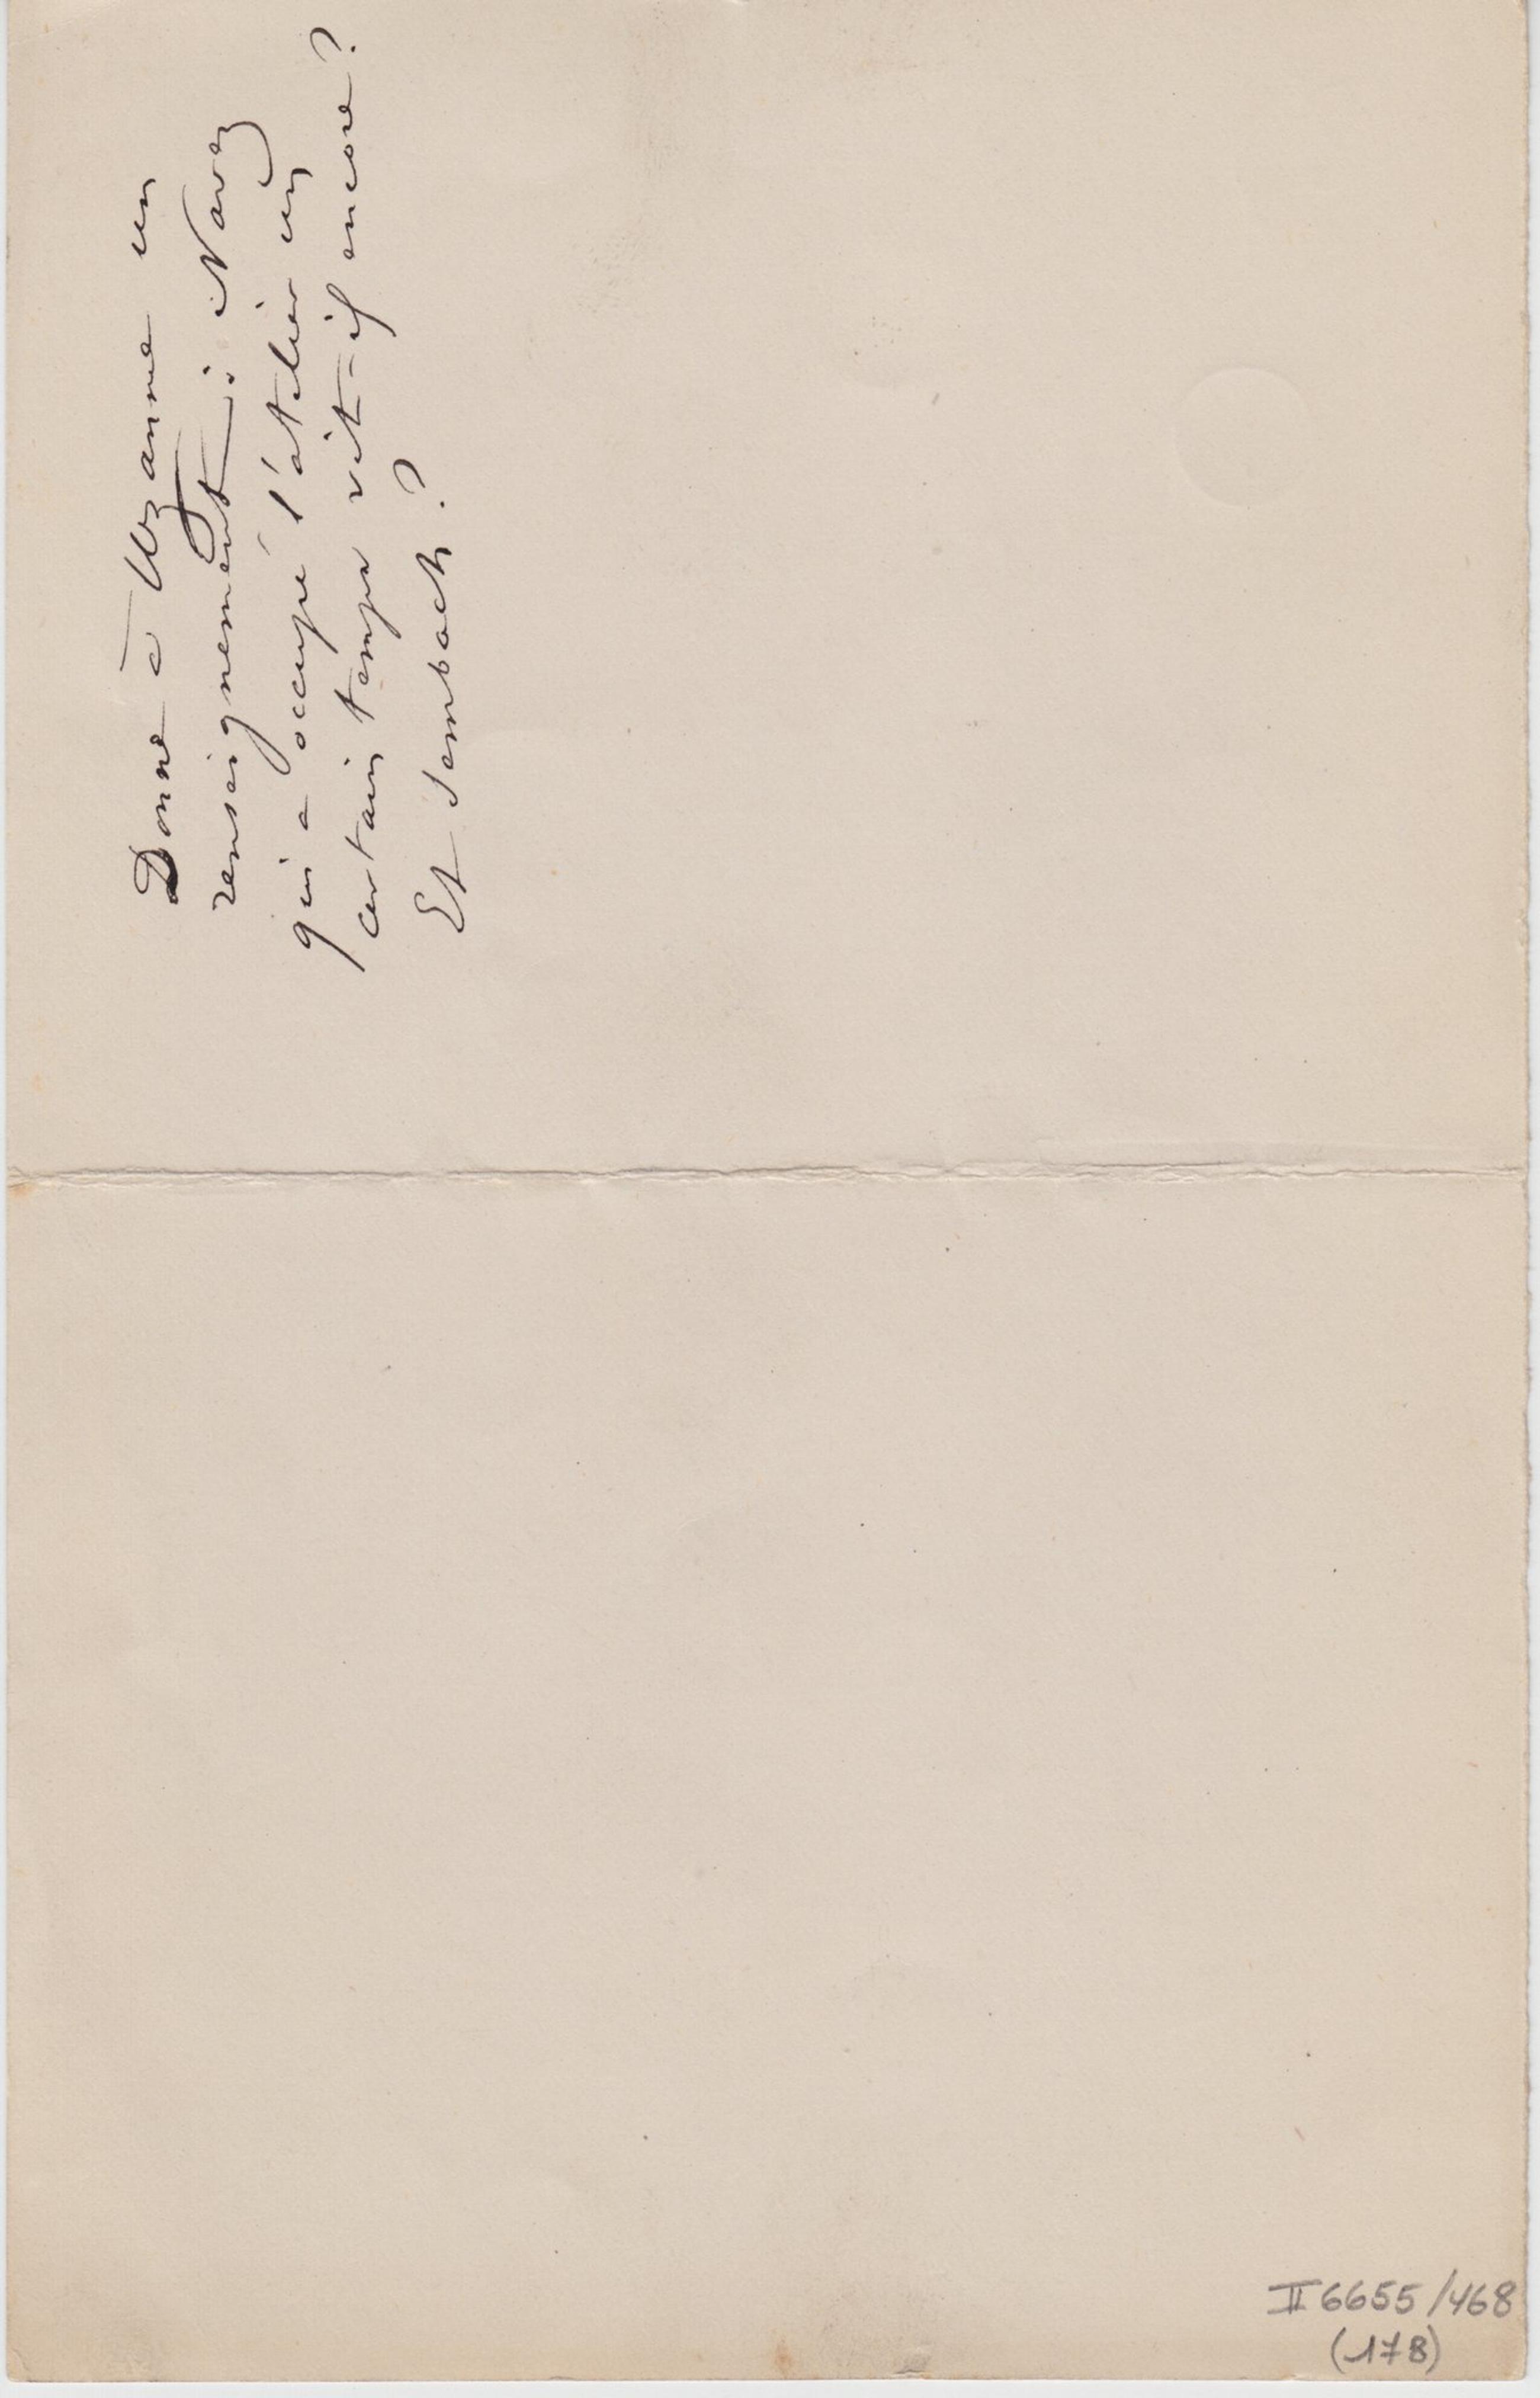 Donne à Uzanne un
renseignement : Navez
qui a occupé l'atelier un
certain temps vit-il encore?
Et Sembach?
II 6655/468
(178)